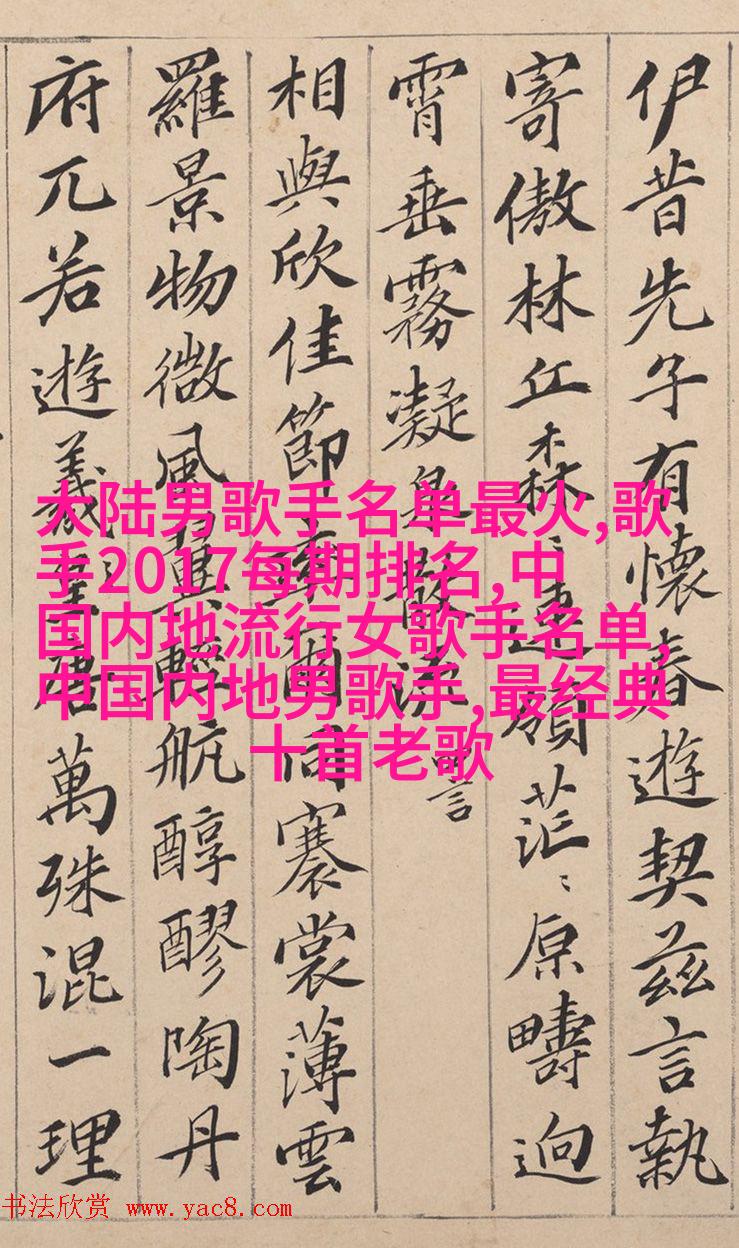 伊昔先子有懷春遊契茲言執
寄傲林丘森〻連嶺茫〻原疇逈
霄垂霧凝泉散流 言
相與欣佳節率爾同褰裳薄雲
羅景物微風翼輕航醇醪陶丹
府兀若遊羲唐萬殊混一理
大陆男歌手名单最火,歌
手2017每期排名,中
国内地流行女歌手名单,
中国内地男歌手,最经典
十首老歌
书法欣赏 www.yac8.com